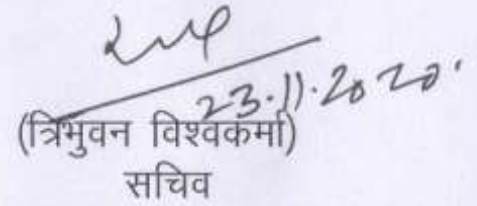 23.11.2020.
(त्रिभुवन विश्वकर्मा)
सचिव